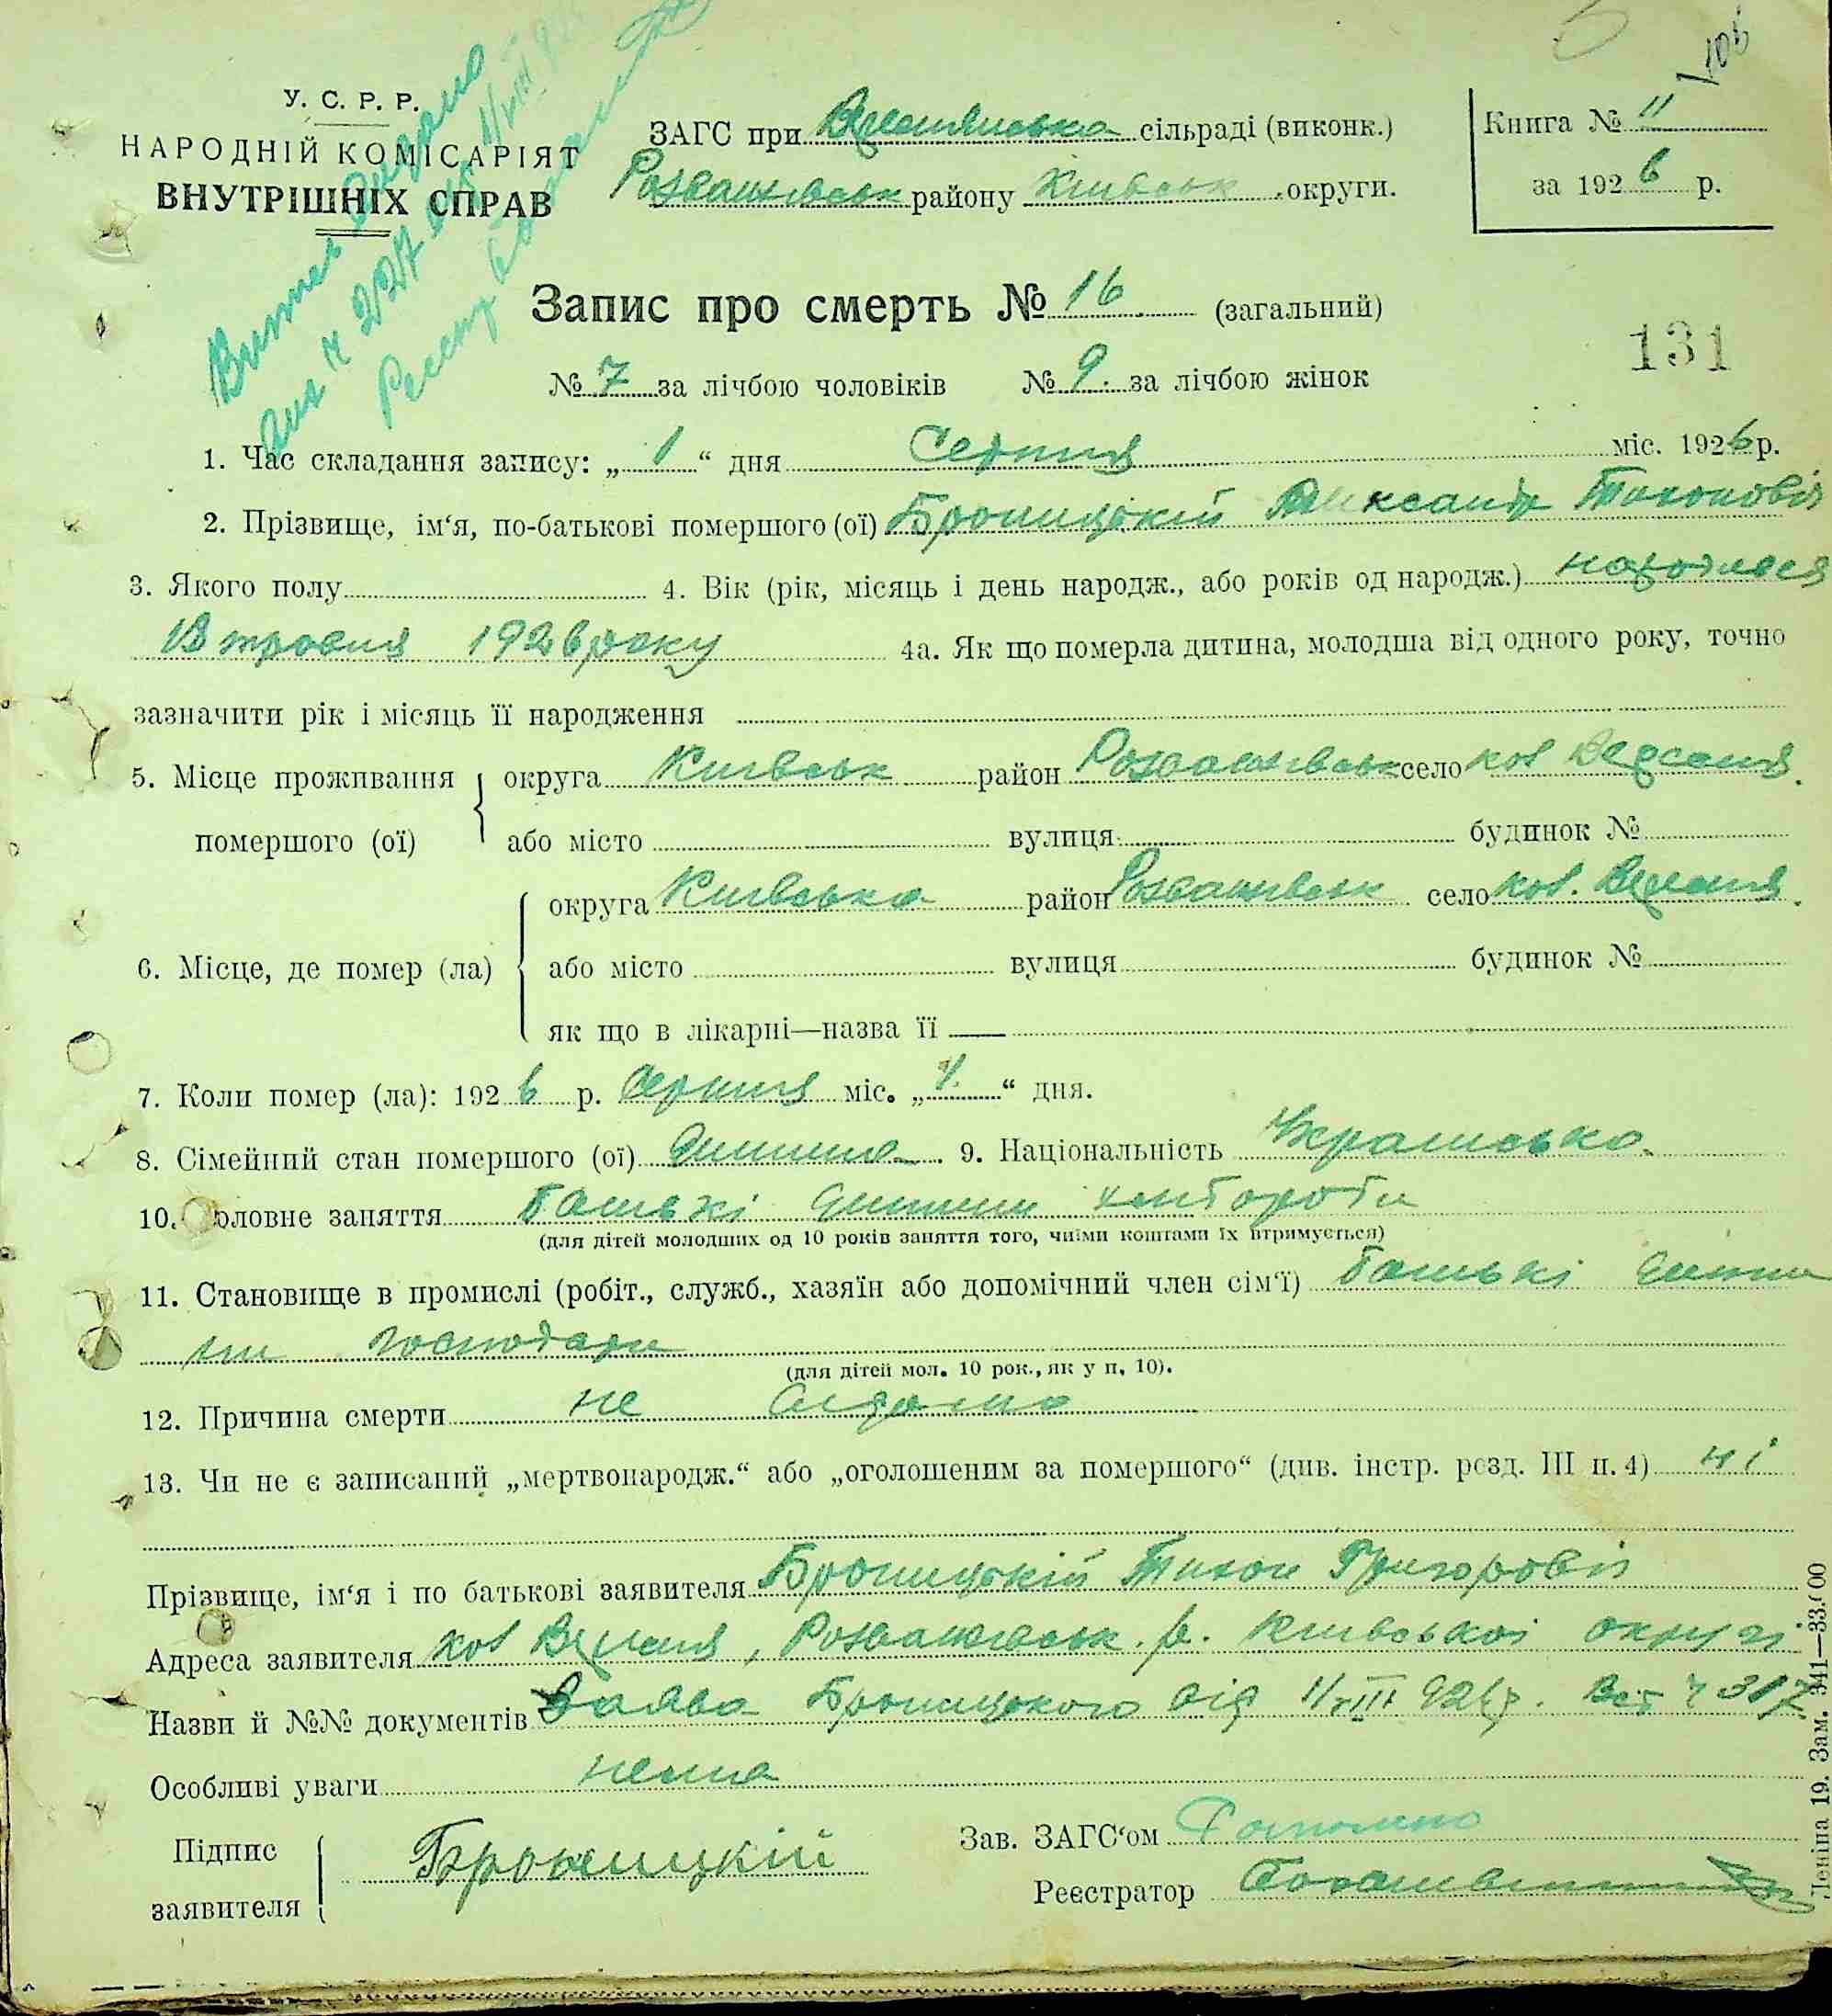 У. С. Р. Р.
НАРОДНІЙ КОМІСАРІЯТ
ВНУТРІШНІХ СПРАВ
Витяг видано
ЗАГС при сільраді (виконк.)
району Київськ округи.
Книга № II
за 1926 р.
Запис про смерть № 16 (загальний)
131
№ 7 за лічбою чоловіків № 9. за лічбою жінок
1. Час складання запису: „ 1 “ дня Серпня міс. 1926 р.
2. Прізвище, ім‘я, по-батькові помершого (ої) Броницькій Александр Тихонович
3. Якого полу 4. Вік (рік, місяць і день народж., або років од народж.) народився
травня 1926 року 4а. Як що померла дитина, молодша від одного року, точно
зазначити рік і місяць її народження
5. Місце проживання округа Київськ район село кол
помершого (ої) або місто вулиця будинок №
округа Київська район село кол.
6. Місце, де помер (ла) або місто вулиця будинок №
як що в лікарні—назва її —
7. Коли помер (ла): 1926 р. Серпня міс. „ 1. “ дня.
8. Сімейний стан помершого (ої) Дитина. 9. Національність Українська.
10. Головне заняття Батькі дитини хлібороби
(для дітей молодших од 10 років заняття того, чиїми коштами їх втримується)
11. Становище в промислі (робіт., служб., хазяїн або допомічний член сім‘ї) Батькі дити
ни господари
(для дітей мол. 10 рок., як у п. 10).
12. Причина смерти не відомо
13. Чи не є записаний „мертвонародж.“ або „оголошеним за помершого“ (див. інстр. розд. III п. 4) ні
Прізвище, ім‘я і по батькові заявителя Броницькій Тихон Григорович
Адреса заявителя кол р. Київської округі
Назви й №№ документів Заява Броницького від 1/VIII 926 р. 317
Особливі уваги нема
Підпис Броницкій
заявителя
Зав. ЗАГС‘ом
Реєстратор
Леніна 19. Зам. 341—33.000